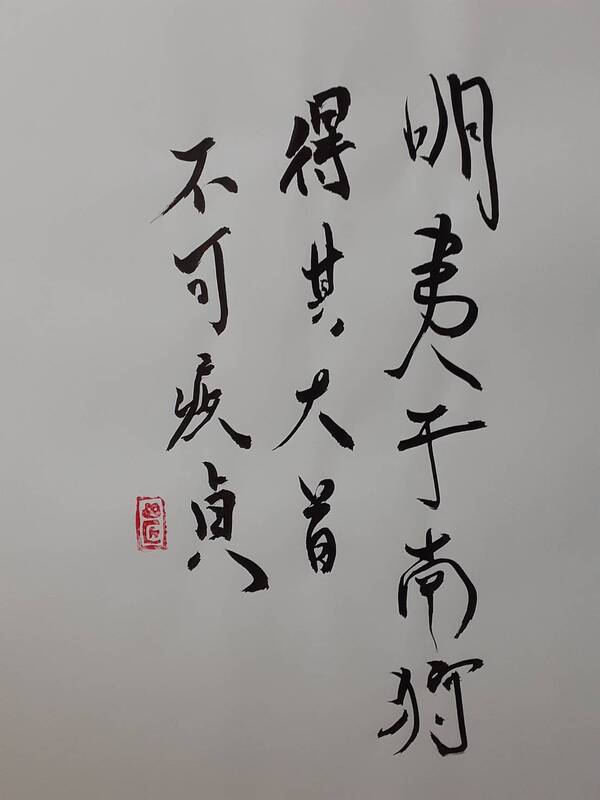 明夷于南狩
得其大首
不可疾贞